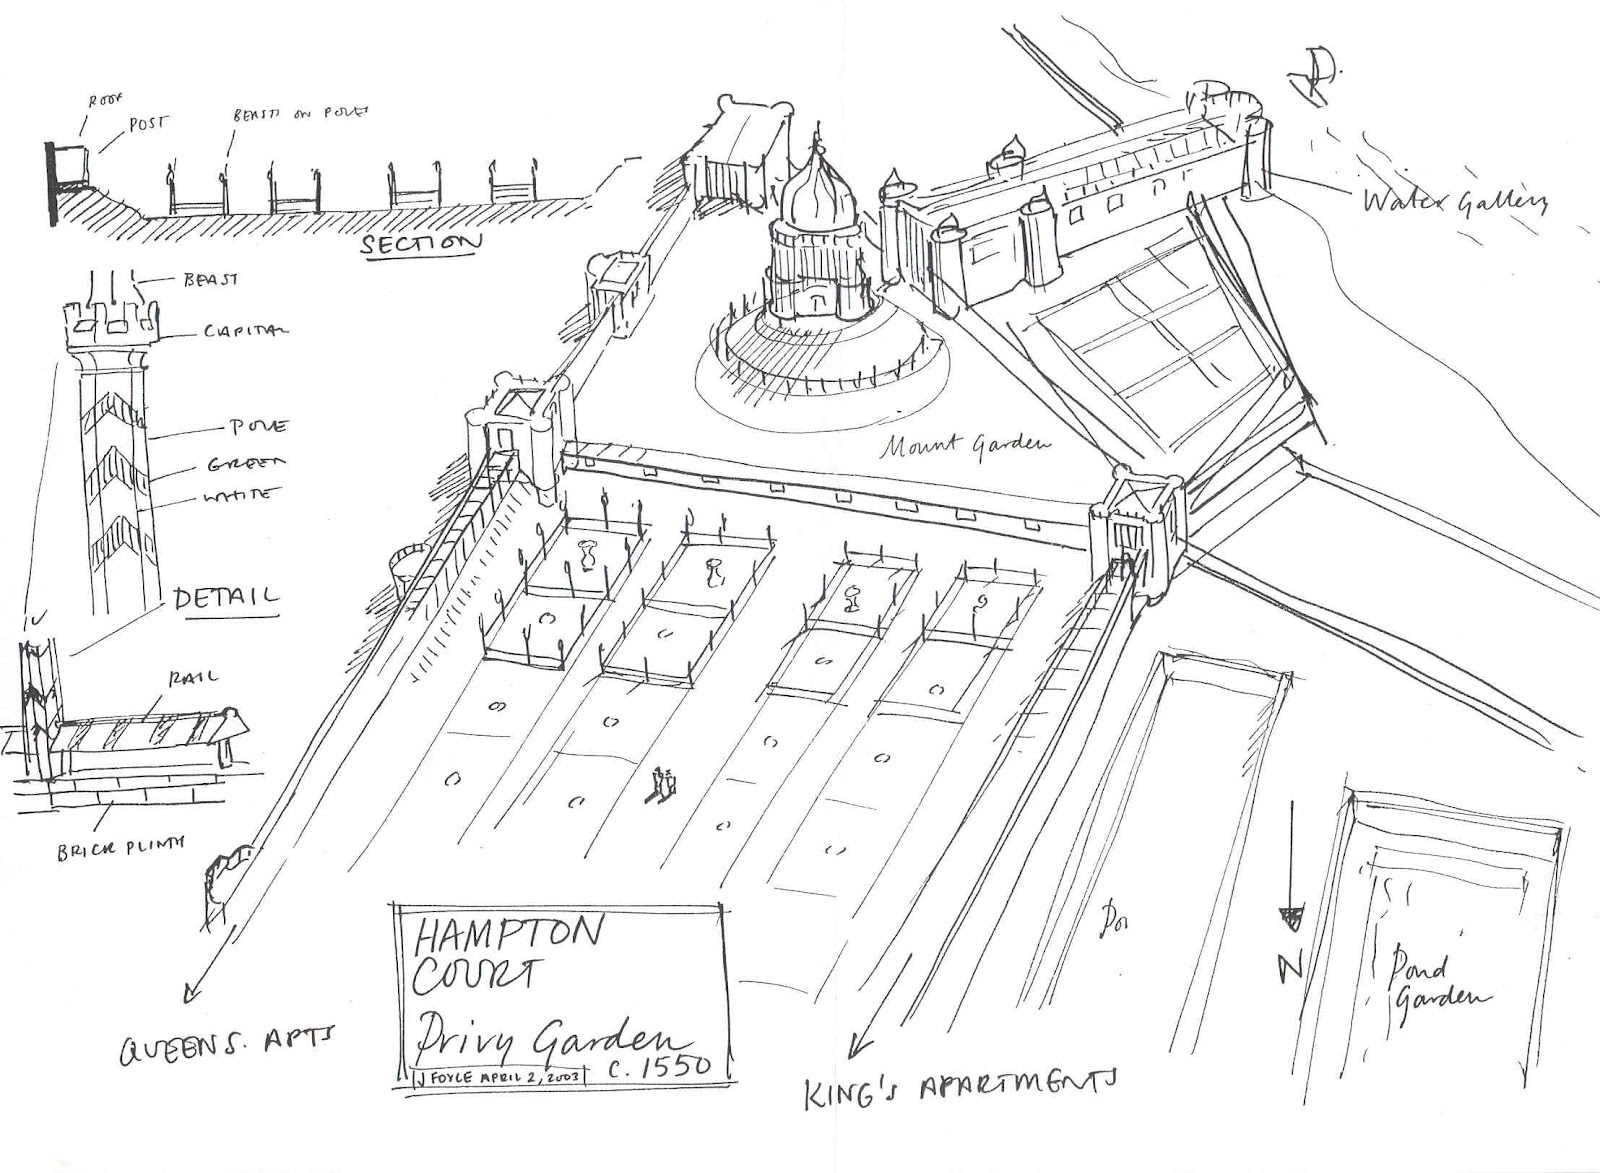 ROOF
POST
BEASTS ON POLES
SECTION
BEAST
CAPITAL
POLE
GREEN
WHITE
DETAIL
RAIL
BRICK PLINTH
Water Gallery
Mount Garden
Pond
Garden
N
QUEENS. APTS
KING'S APARTMENTS
HAMPTON
COURT
Privy Garden
C. 1550
J FOYLE APRIL 2, 2003